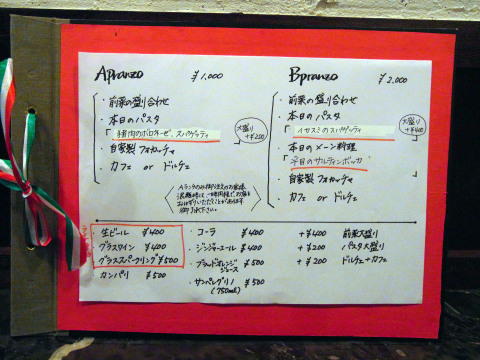 Apranzo ¥1,000
・前菜の盛り合わせ
・本日のパスタ
「猪肉のボロネーゼ、スパゲッティ 大盛り +¥200
・自家製フォカッチャ
・カフェ or ドルチェ
Bpranzo ¥2,000
・前菜の盛り合わせ
・本日の パスタ
「イサスミのスパゲッティ 大盛り +¥400
・本日のメーン料理
「平目のサルティンボッカ
・自家製 フォカッチャ
・カフェ or ドルチェ
Aランチのみ御注文のお客様
混雑時は、一時間程で、お席を
御了承下さい。
生ビール ¥400
グラスワイン ¥400
グラススパークリング ¥500
カンパリ ¥500
・コーラ ¥400
・ジンジャーエール ¥400
・ブラッドオレンジジュース ¥500
・サンペレグリノ (750ml) ¥500
+¥400 前菜大盛り
+¥200 パスタ大盛り
+¥200 ドルチェ+カフェ